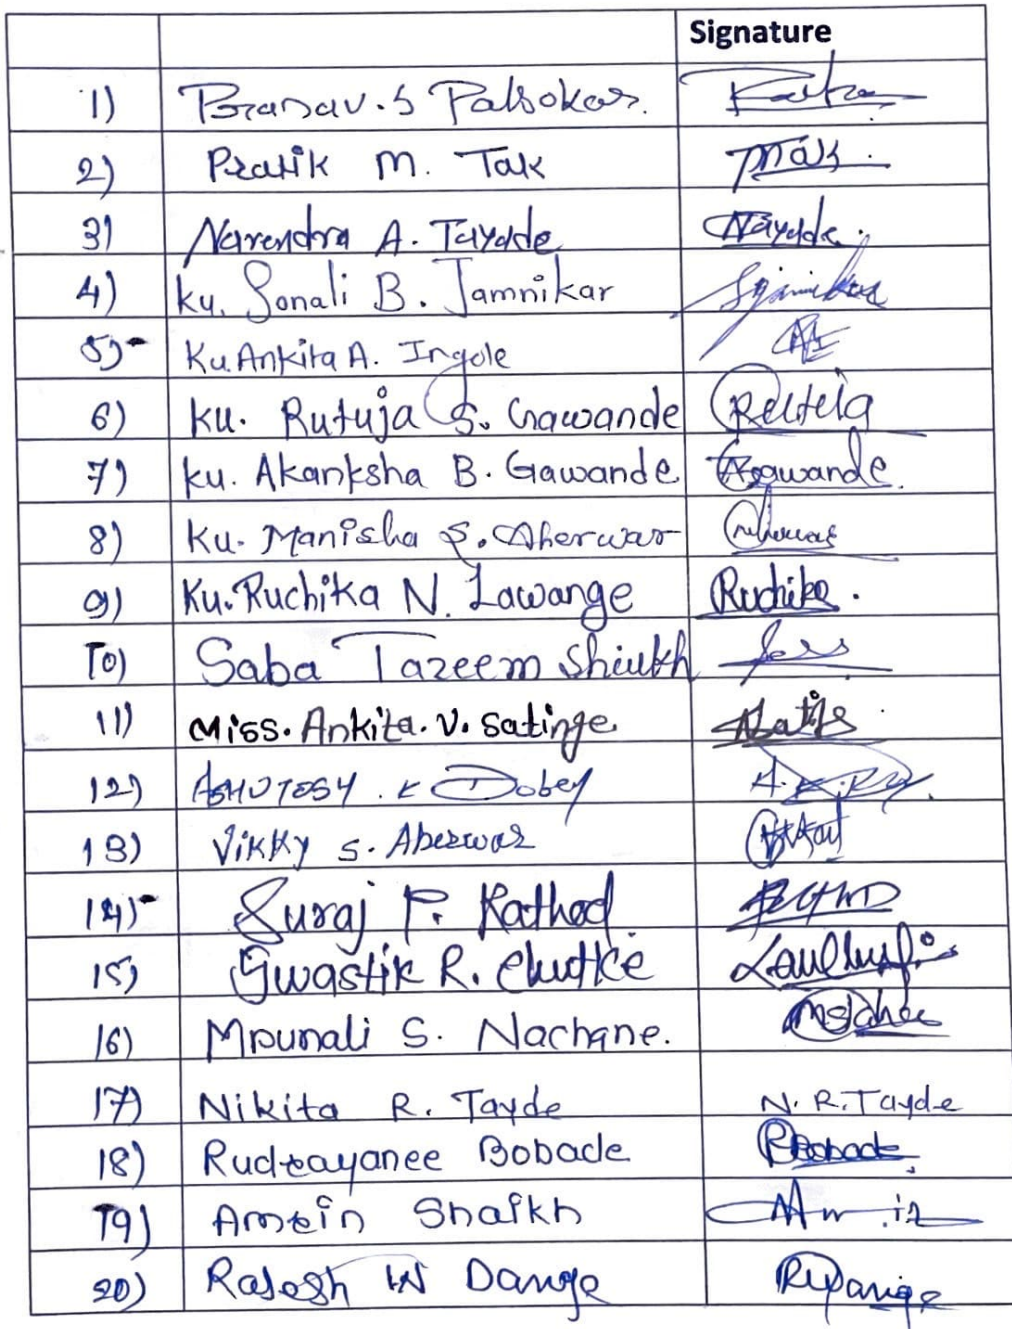 Signature
1) Pranav.S Palsokar.
2) Pratik M. Tak
3) Narendra A. Tayade Nayade.
4) Ku. Sonali B. Jamnikar
5) Ku Ankita A. Ingole
6) Ku. Rutuja S. Gawande
7) Ku. Akanksha B. Gawande Gawande.
8) Ku. Manisha S. Aherwar
9) Ku. Ruchika N. Lawange Ruchika.
10) Saba Tazeem Shiukh
11) Miss. Ankita. V. Satinge.
12) ASHUTOSH . K Dobey
13) Vikky S. Aherwar
14) Suraj P. Rathod
15) Swastik R. Chutke
16) Mrunali S. Nachane.
17) Nikita R. Tayde N. R. Tayde
18) Rudrayanee Bobade RBobade
19) Amein Shaikh
20) Rajesh W Dange RWDange